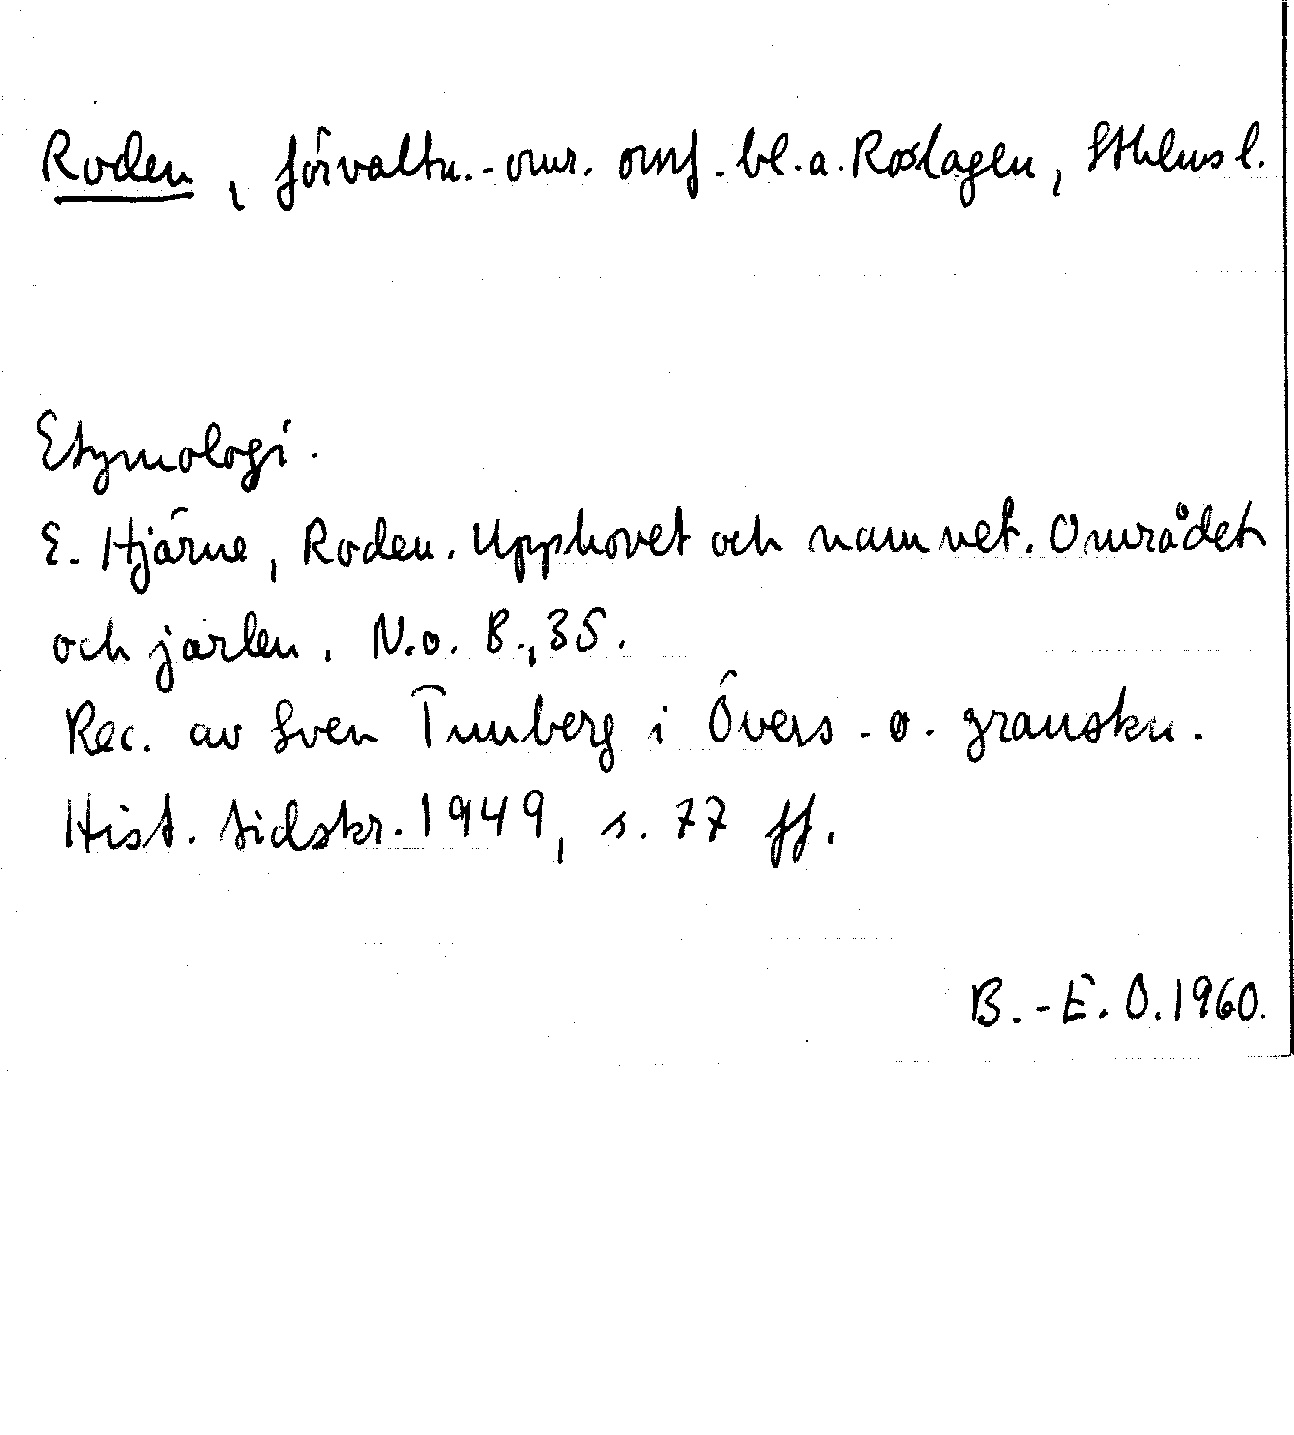 Roden, förvaltn.-omr. omf. bl.a. Roslagen, Sthlms l.
Etymologi.
E. Hjärne, Roden. Upphovet och namnet. Området
och jarlen. N.o. B., 35.
Rec. av Sven Tunberg i Övers. o. granskn.
Hist. tidskr. 1949, s. 77 ff.
B.-E. O. 1960.